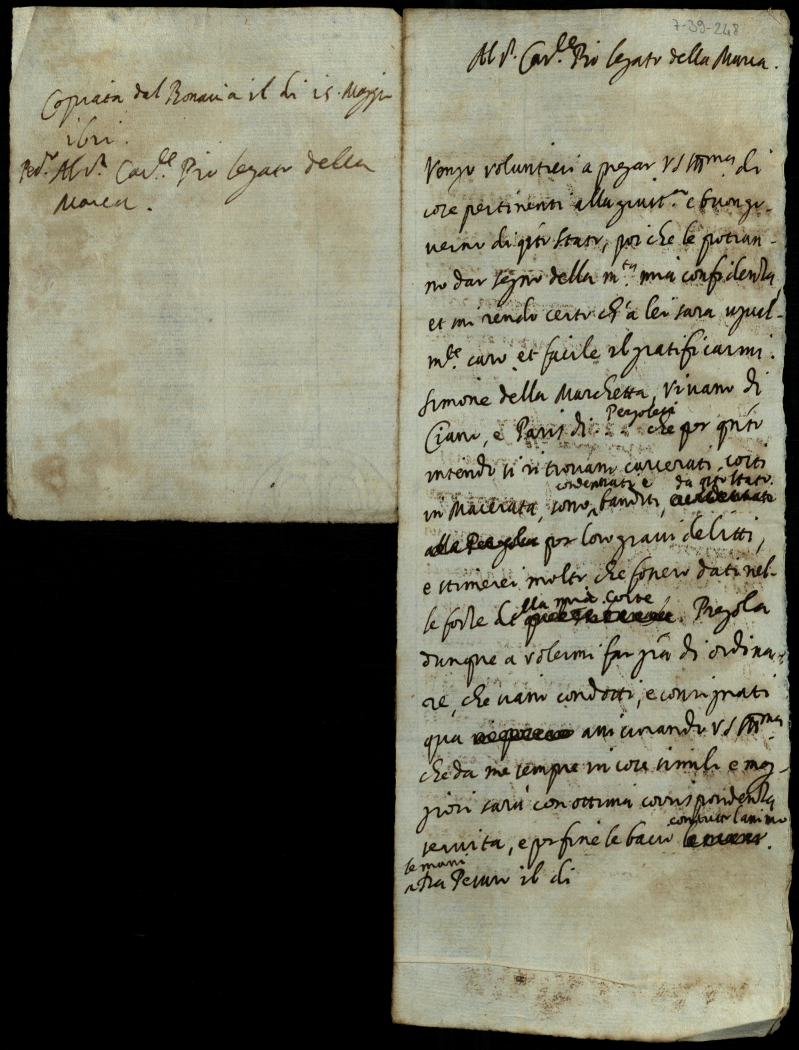 Copiata dal Bonavia il di 15. Maggio
1621.
Ped.ª Al S.r Card.le Pio legato della
Marca.
7-39-248
Al S.r Car.le Pio legato della Marca.
Vengo voluntieri a pregar VS Ill.ma di
cose pertinenti alla giust.a e buon go-
verno di q̃sto stato, poi che le potran-
no dar segno della m.ta mia confidenza,
et mi rendo certo ch'a lei sarà ugual-
m.te caro et facile il gratificarmi.
Simone della Marchetta, Vivano di
Ciano, e Paris di Pergoletti che per q̃nto
intendo si ritrovano carcerati costì
in Macerata, sono condennati e banditi, da q̃sto stato.
alla Pergola per loro gravi delitti,
e stimerei molto che fossero dati nel-
le forze della mia corte. Pregola
dunque a volermi far gr̃a di ordina-
re, che siano condotti, e consignati
qua assicurando VS Ill.ma
che da me sempre in cose simili e mag-
giori sarà con ottima corrispondenza
servita, e per fine le bacio con tutto l'animo
le mani.
Da Pesaro il di